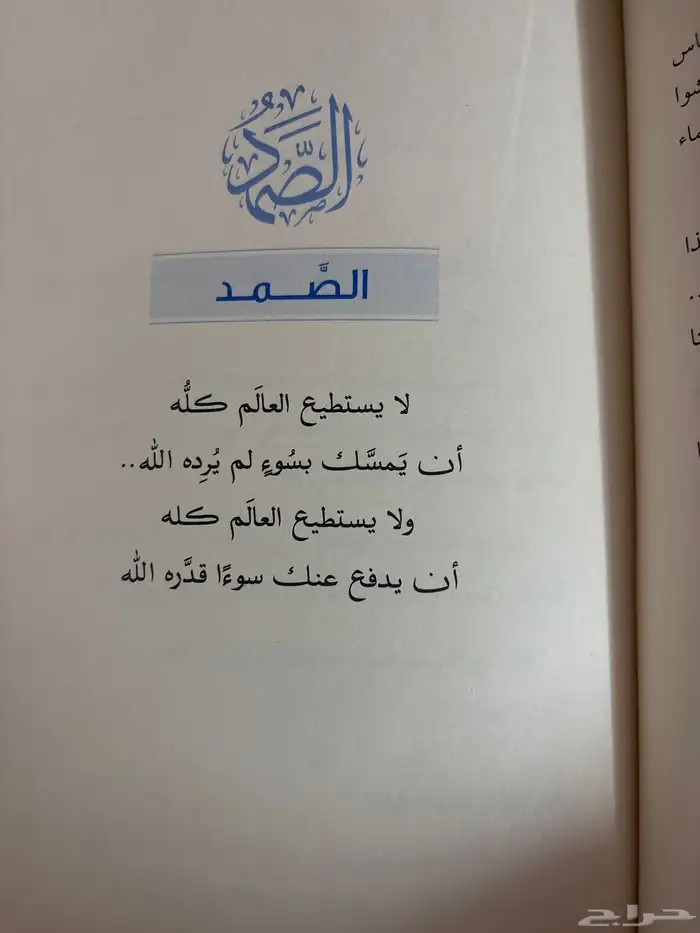 الصَّمَدُ
الصَّمد
لا يستطيع العالَم كلُّه
أن يَمسَّك بسُوءٍ لم يُرِده الله..
ولا يستطيع العالَم كله
أن يدفع عنك سوءًا قدَّره الله
حراج